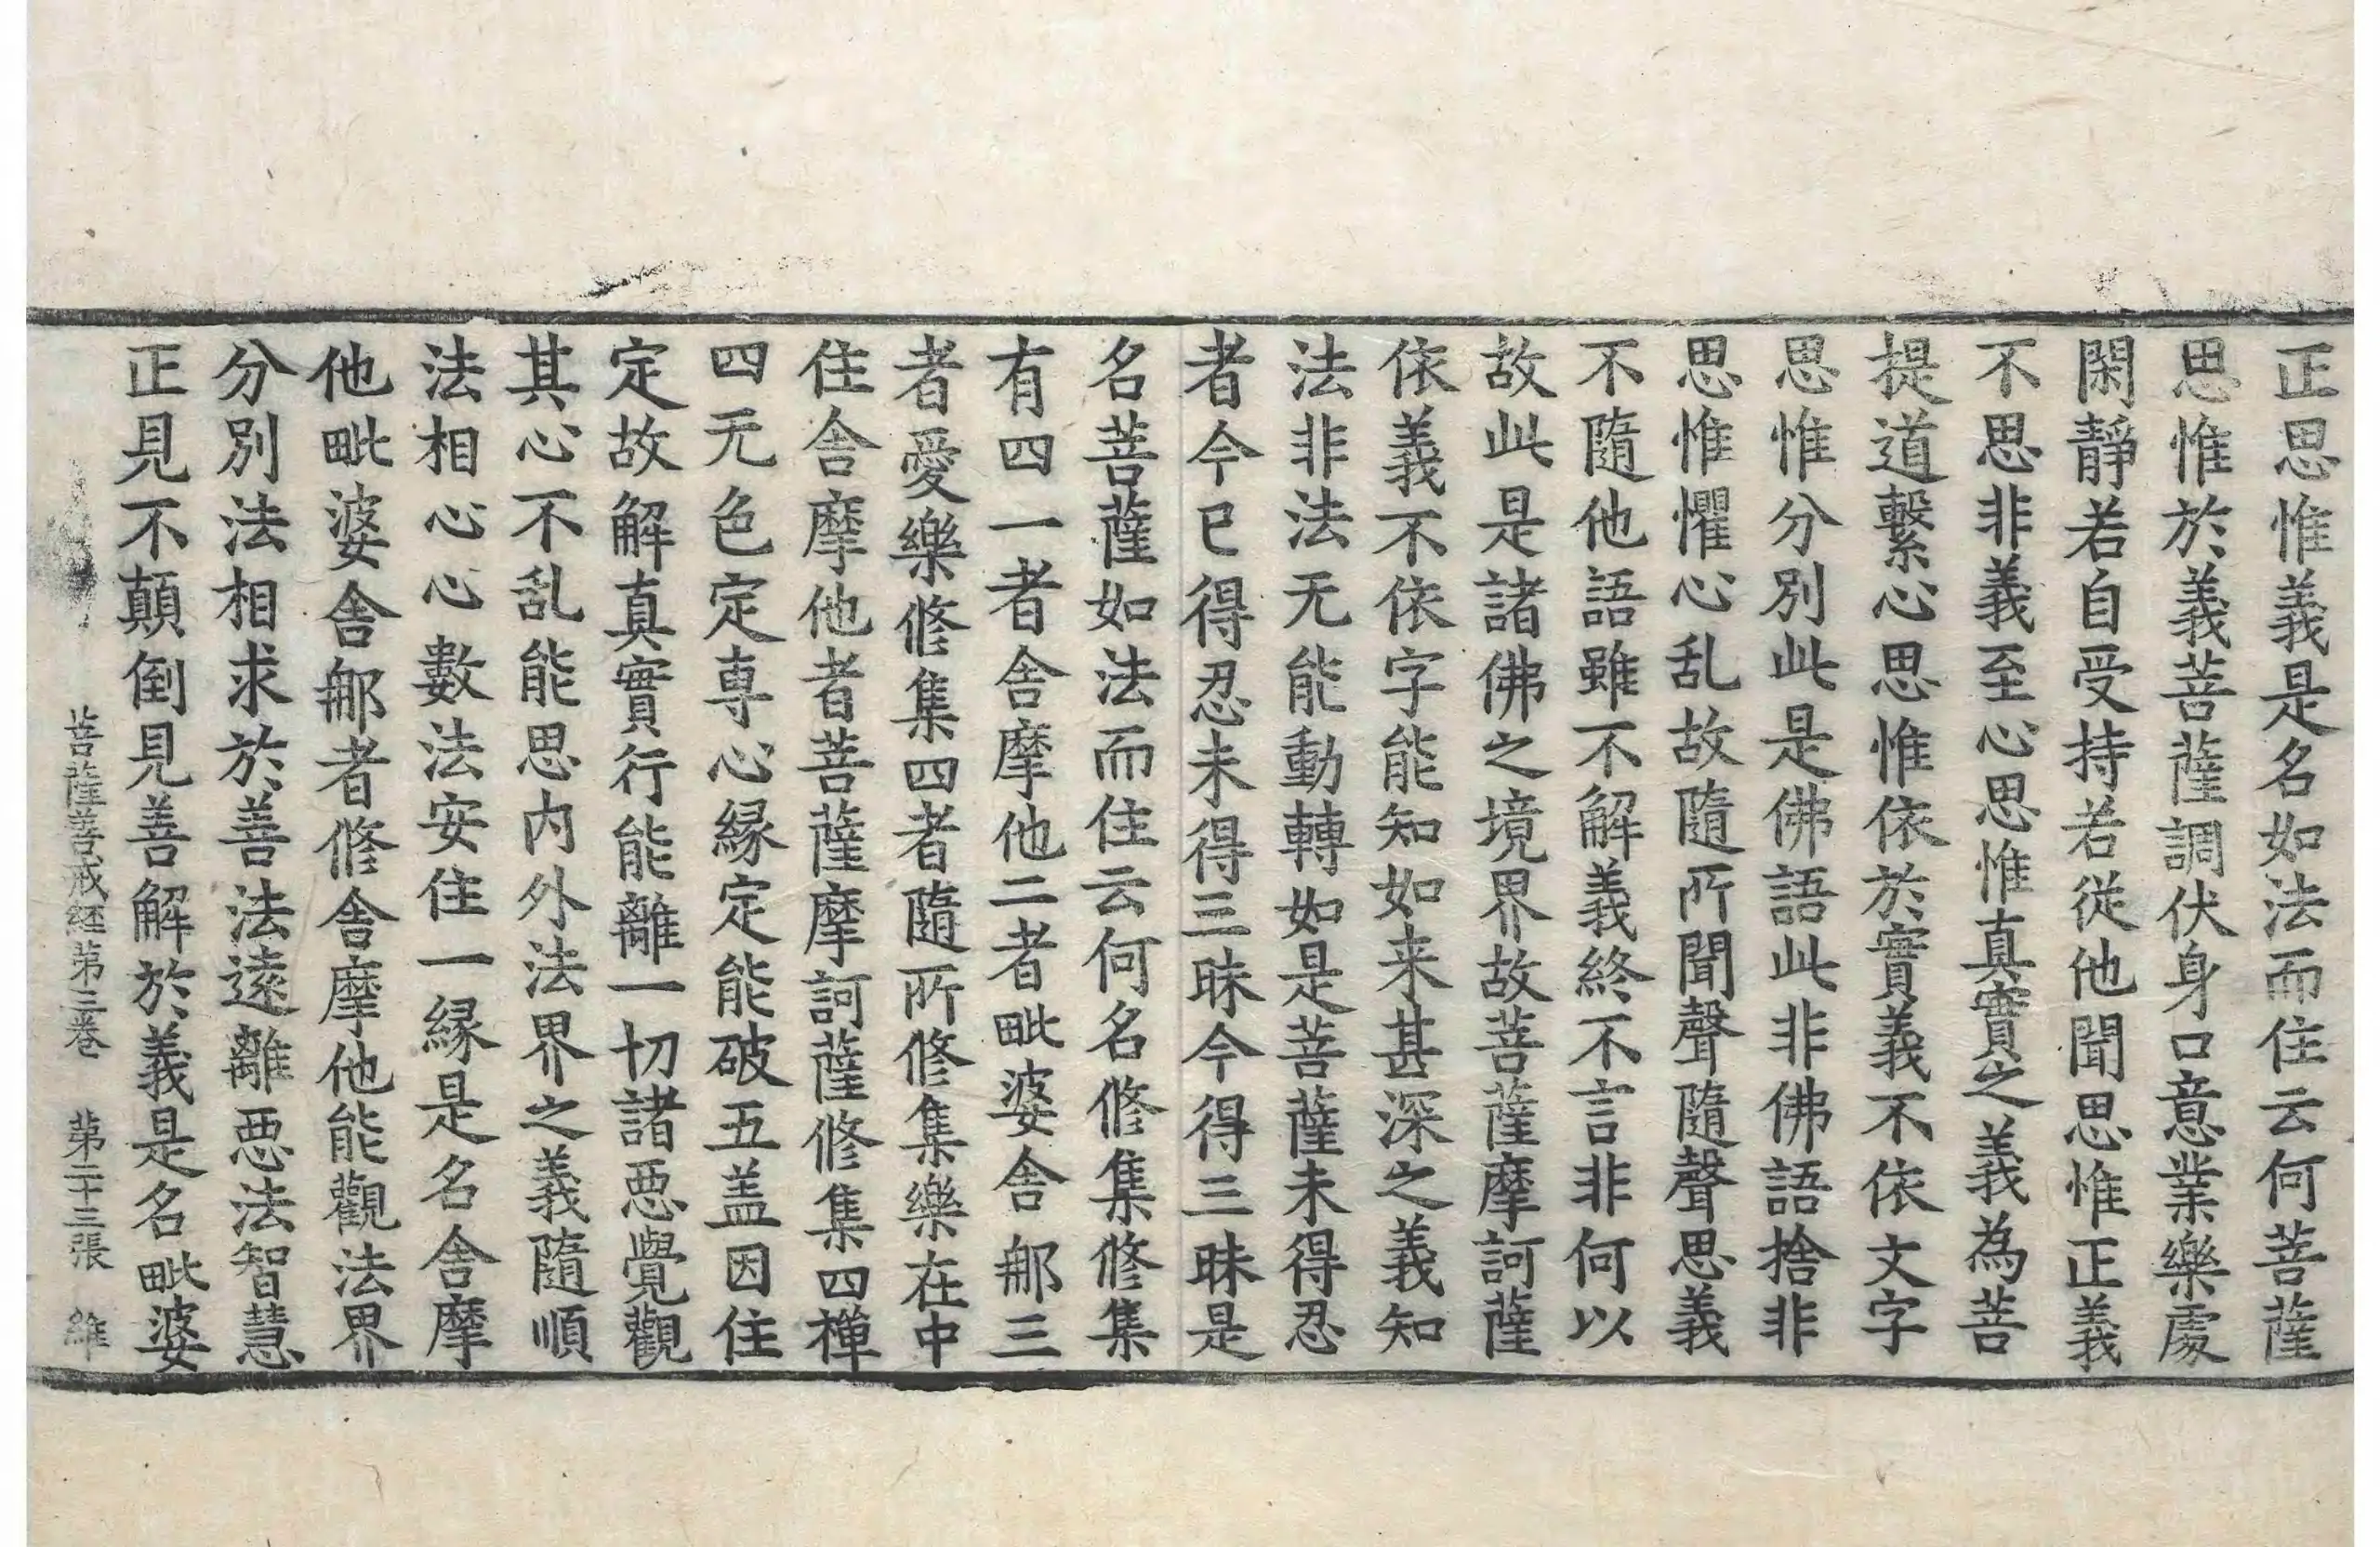 正思惟義是名如法而住云何菩薩
思惟於義菩薩調伏身口意業樂處
閑靜若自受持若從他聞思惟正義
不思非義至心思惟真實之義為菩
提道繫心思惟依於實義不依文字
思惟分別此是佛語此非佛語捨非
思惟懼心乱故隨所聞聲隨聲思義
不隨他語雖不解義終不言非何以
故此是諸佛之境界故菩薩摩訶薩
依義不依字能知如来甚深之義知
法非法无能動轉如是菩薩未得忍
者今已得忍未得三昧今得三昧是
名菩薩如法而住云何名修集修集
有四一者舍摩他二者毗婆舍那三
者愛樂修集四者隨所修集樂在中
住舍摩他者菩薩摩訶薩修集四禪
四无色定専心縁定能破五盖因住
定故解真實行能離一切諸惡覺觀
其心不乱能思内外法界之義隨順
法相心心數法安住一縁是名舍摩
他毗婆舍那者修舍摩他能觀法界
分別法相求於善法遠離惡法智慧
正見不顛倒見善解於義是名毗婆
菩薩善戒経第三巻　第二十三張　維